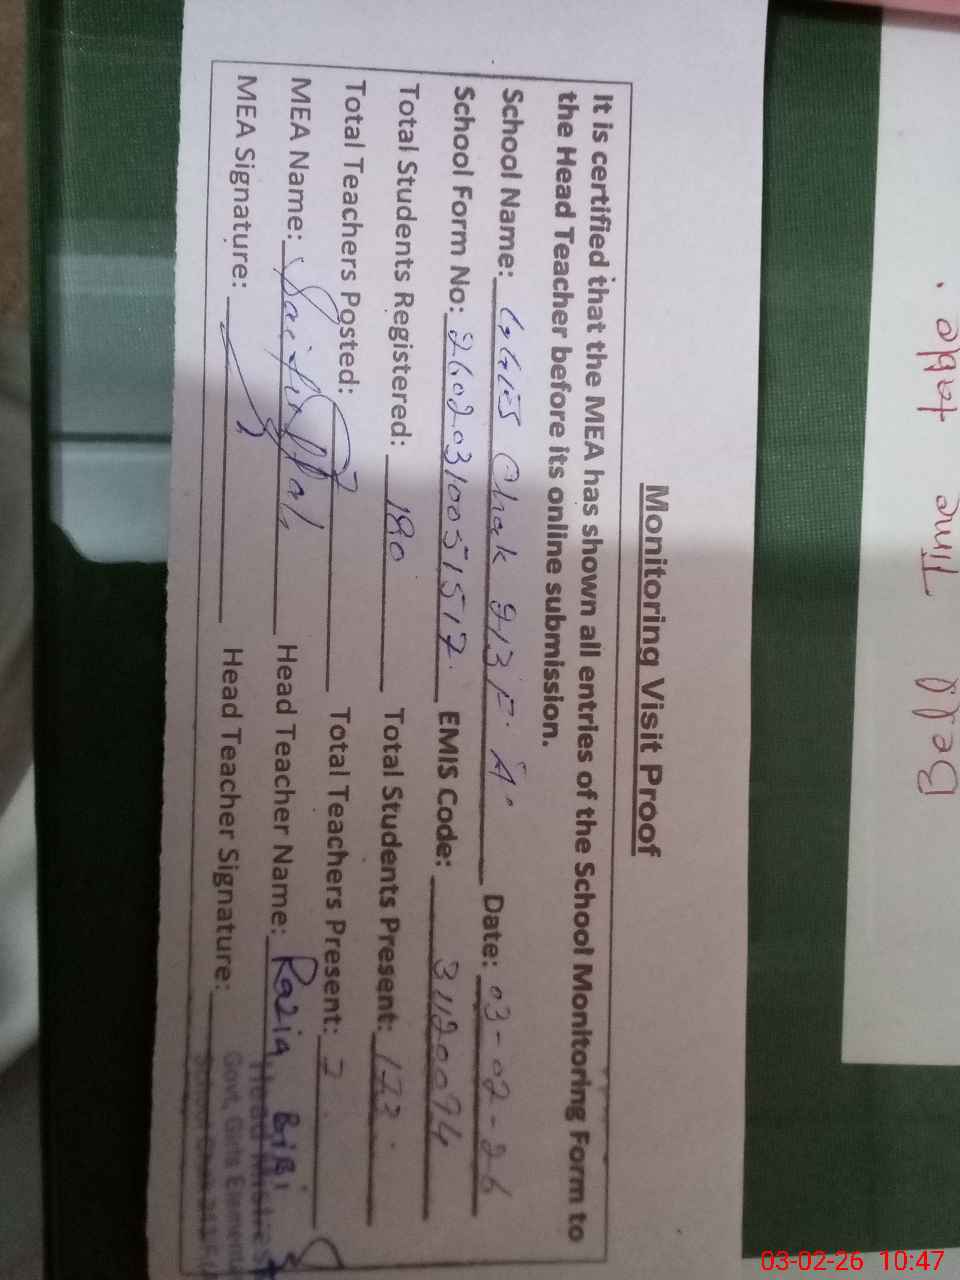 Monitoring Visit Proof
It is certified that the MEA has shown all entries of the School Monitoring Form to
the Head Teacher before its online submission.
School Name: GGES Chak 213 F. A. Date: 03-02-26
School Form No: 26020310051517. EMIS Code: 31120094
Total Students Registered: 180 Total Students Present: 122.
Total Teachers Posted: 7 Total Teachers Present: 7
MEA Name: Saif Head Teacher Name: Razia BiBi
MEA Signature: Head Teacher Signature:
Head
Govt. Girls Element
Bell Time table.
03-02-26 10:47